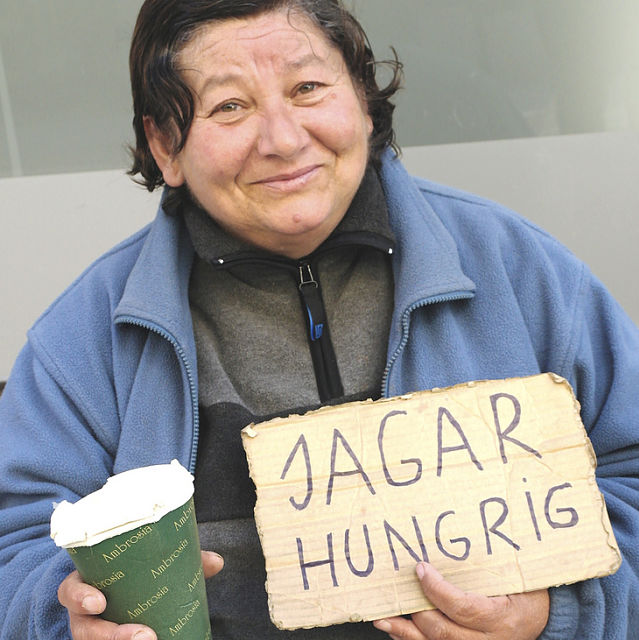 JAGAR
HUNGRiG
Ambrosia
Ambrosia
Ambrosia
Ambrosia
Ambrosia